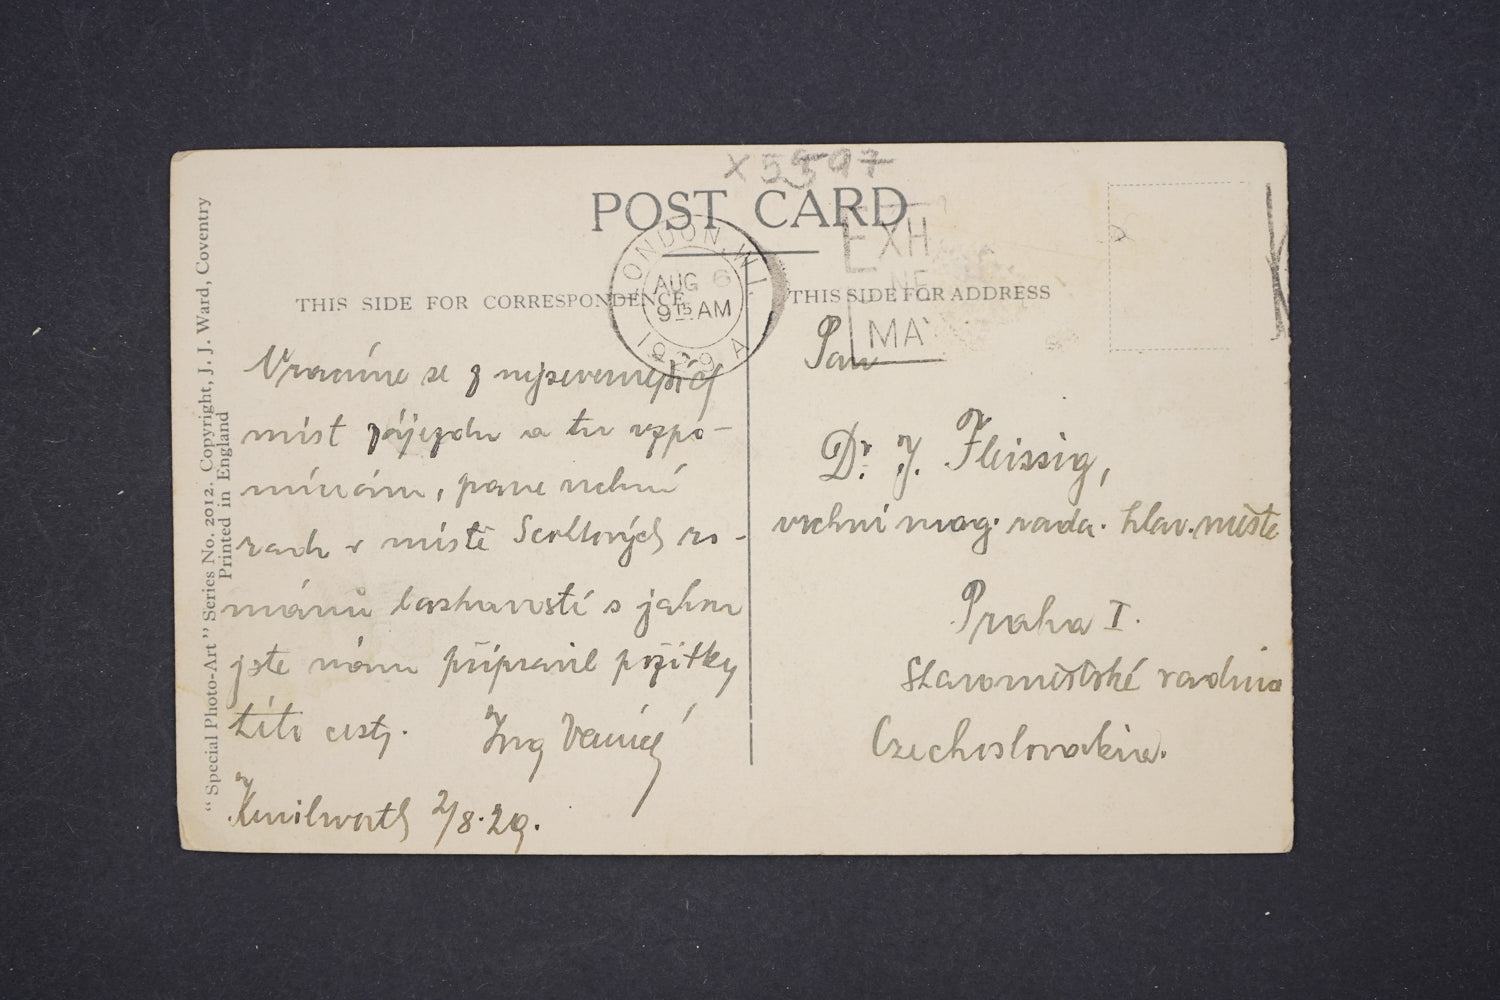 X5597
POST CARD
LONDON. W.1.
AUG 6
9 15 AM
1929
A
EXH
NE
MA
THIS SIDE FOR CORRESPONDENCE
THIS SIDE FOR ADDRESS
"Special Photo-Art" Series No. 2012. Copyright, J. J. Ward, Coventry
Printed in England
Vracíme se z nejsevernějších
míst zájezdu a tu vzpo-
mínám, pane vrchní
rado v místě Scottových ro-
mánů laskavosti s jakou
jste nám připravil požitky
této cesty. Ing
Kenilworth 2/8.29.
Pan
Dr. J. Fleissig,
vrchní mag. rada. hlav. města
Praha I.
Staroměstské radnice
Czechoslovakia.